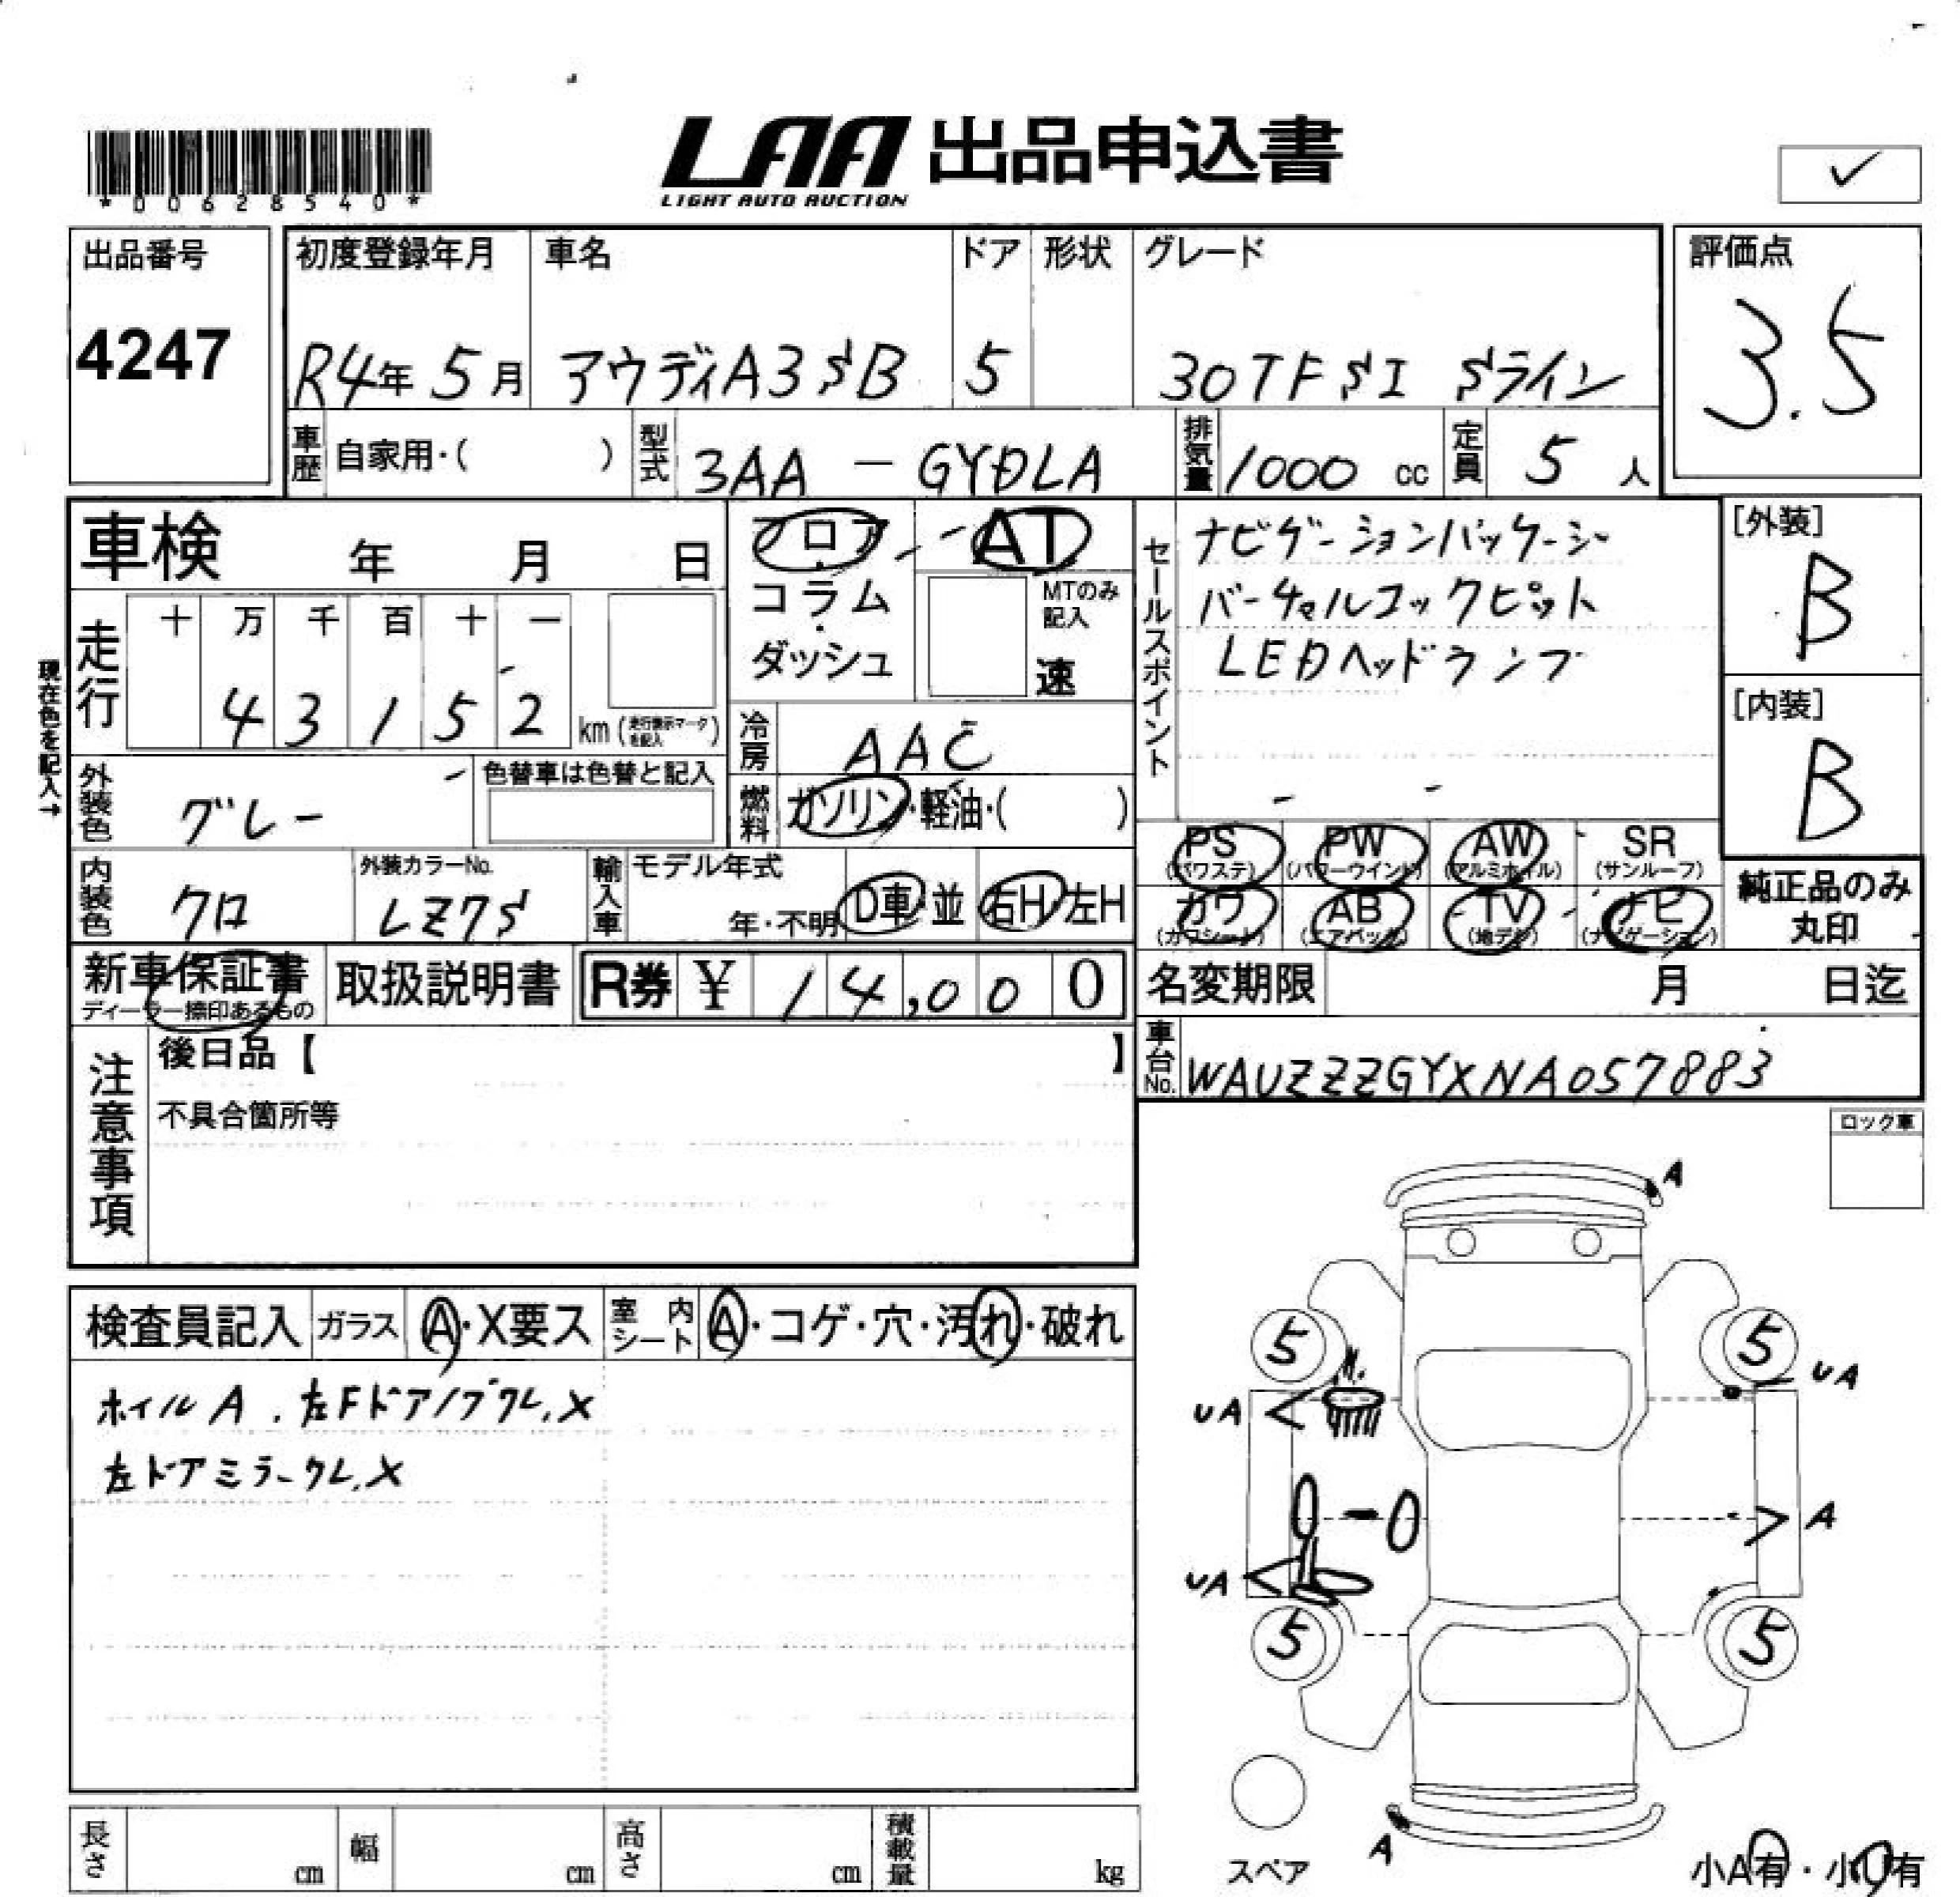 *00628540*
LAA 出品申込書
LIGHT AUTO AUCTION
✓
出品番号
4247
初度登録年月 車名 ドア 形状 グレード
R4年 5月 アウディA3SB 5 30TFSI Sライン
評価点
3.5
車歴 自家用・( ) 型式 3AA - GYDLA 排気量 1000 cc 定員 5 人
車検 年 月 日
フロア・コラム・ダッシュ
AT
MTのみ記入
速
セールスポイント
ナビゲーションパッケージ
バーチャルコックピット
LEDヘッドランプ
[外装]
B
[内装]
B
現在色を記入→
走行 十 万 千 百 十 一
4 3 1 5 2 km (走行表示マークを記入)
冷房 AAC
外装色 グレー 色替車は色替と記入
燃料 ガソリン・軽油・( )
内装色 クロ 外装カラーNo. LZ7S
輸入車 モデル年式 年・不明 D車・並 右H・左H
PS (パワステ) PW (パワーウインド) AW (アルミホイル) SR (サンルーフ)
カワ (カワシート) AB (エアバック) TV (地デジ) ナビ (ナビゲーション)
純正品のみ丸印
新車保証書
ディーラー捺印あるもの
取扱説明書
R券 ¥ 14,000
名変期限 月 日迄
車台No. WAUZZZGYXNA057883
注意事項
後日品【 】
不具合箇所等
ロック車
検査員記入 ガラス A・X要ス 室内シート A・コゲ・穴・汚れ・破れ
ホイルA. 左FドアノブワレX
左ドアミラーワレ.X
A
5 5
UA UA
A
UA
5 5
A
スペア
小A有・小U有
長さ cm 幅 cm 高さ cm 積載量 kg